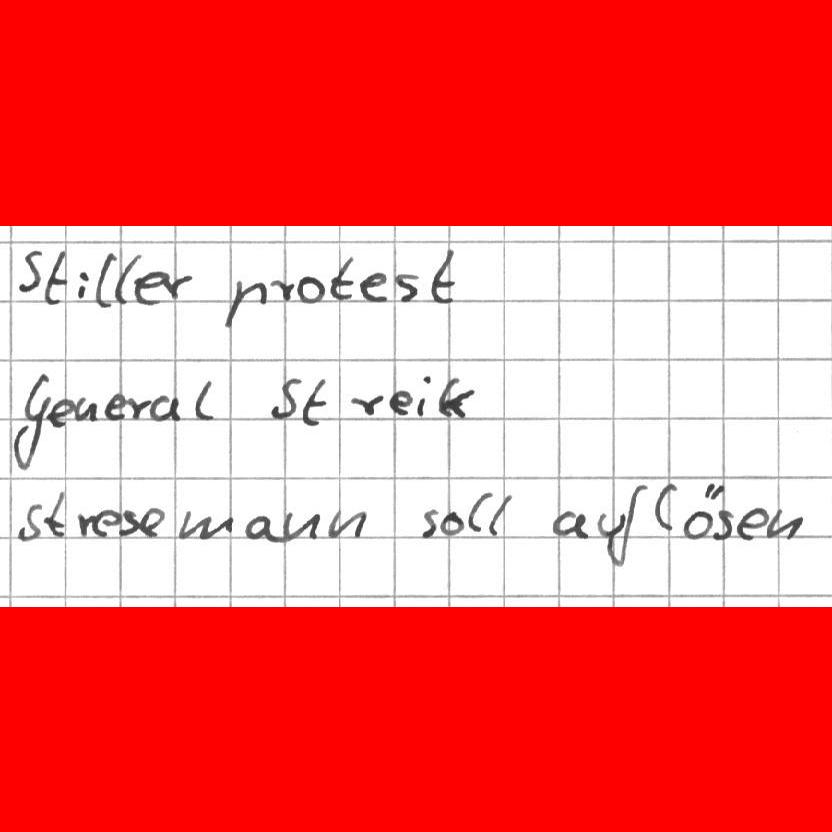 Stiller protest
General Streik
stresemann soll auflösen